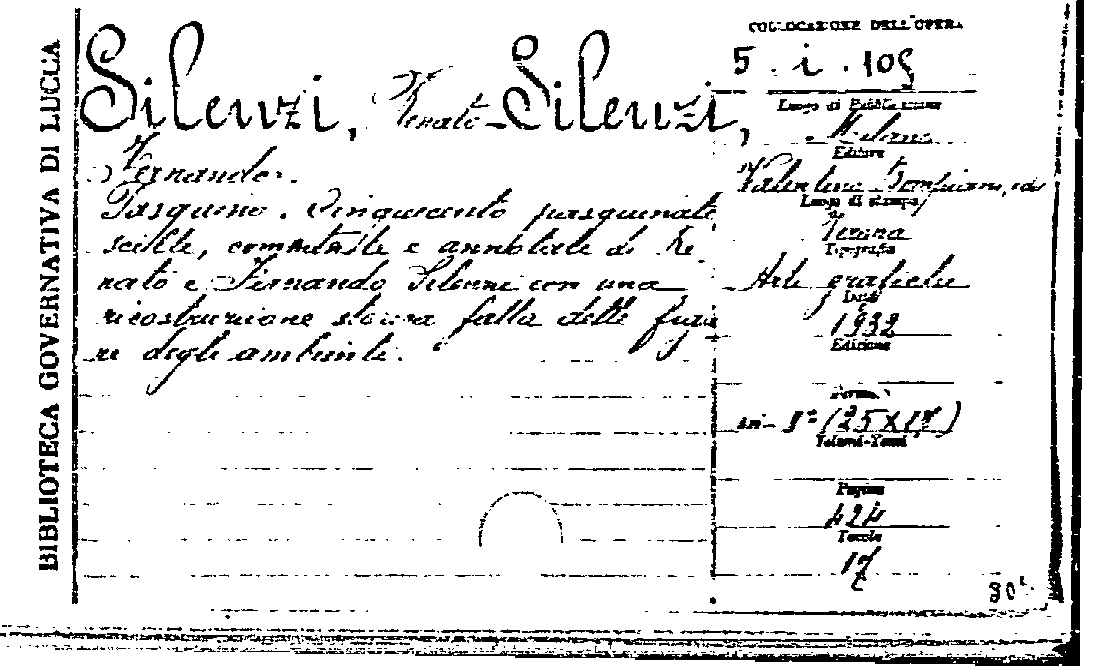 BIBLIOTECA GOVERNATIVA DI LUCCA
Silenzi, Renato - Silenzi,
Fernando.
Pasquino. Cinquecento pasquinate
scelte, commentate e annotate di Re
nato e Fernando Silenzi con una
ricostruzione storica fatta delle figu
re degli ambienti.
COLLOCAZIONE DELL'OPERA
5 . i . 105
Luogo di Pubblicazione
Milano
Editore
Valentino Bompiani, ed.
Luogo di stampa
Verona
Tipografia
Arti grafiche
Data
1932
Edizione
Formato
in-8º (25x17)
Volumi-Tomi
Pagine
424
Tavole
17
30